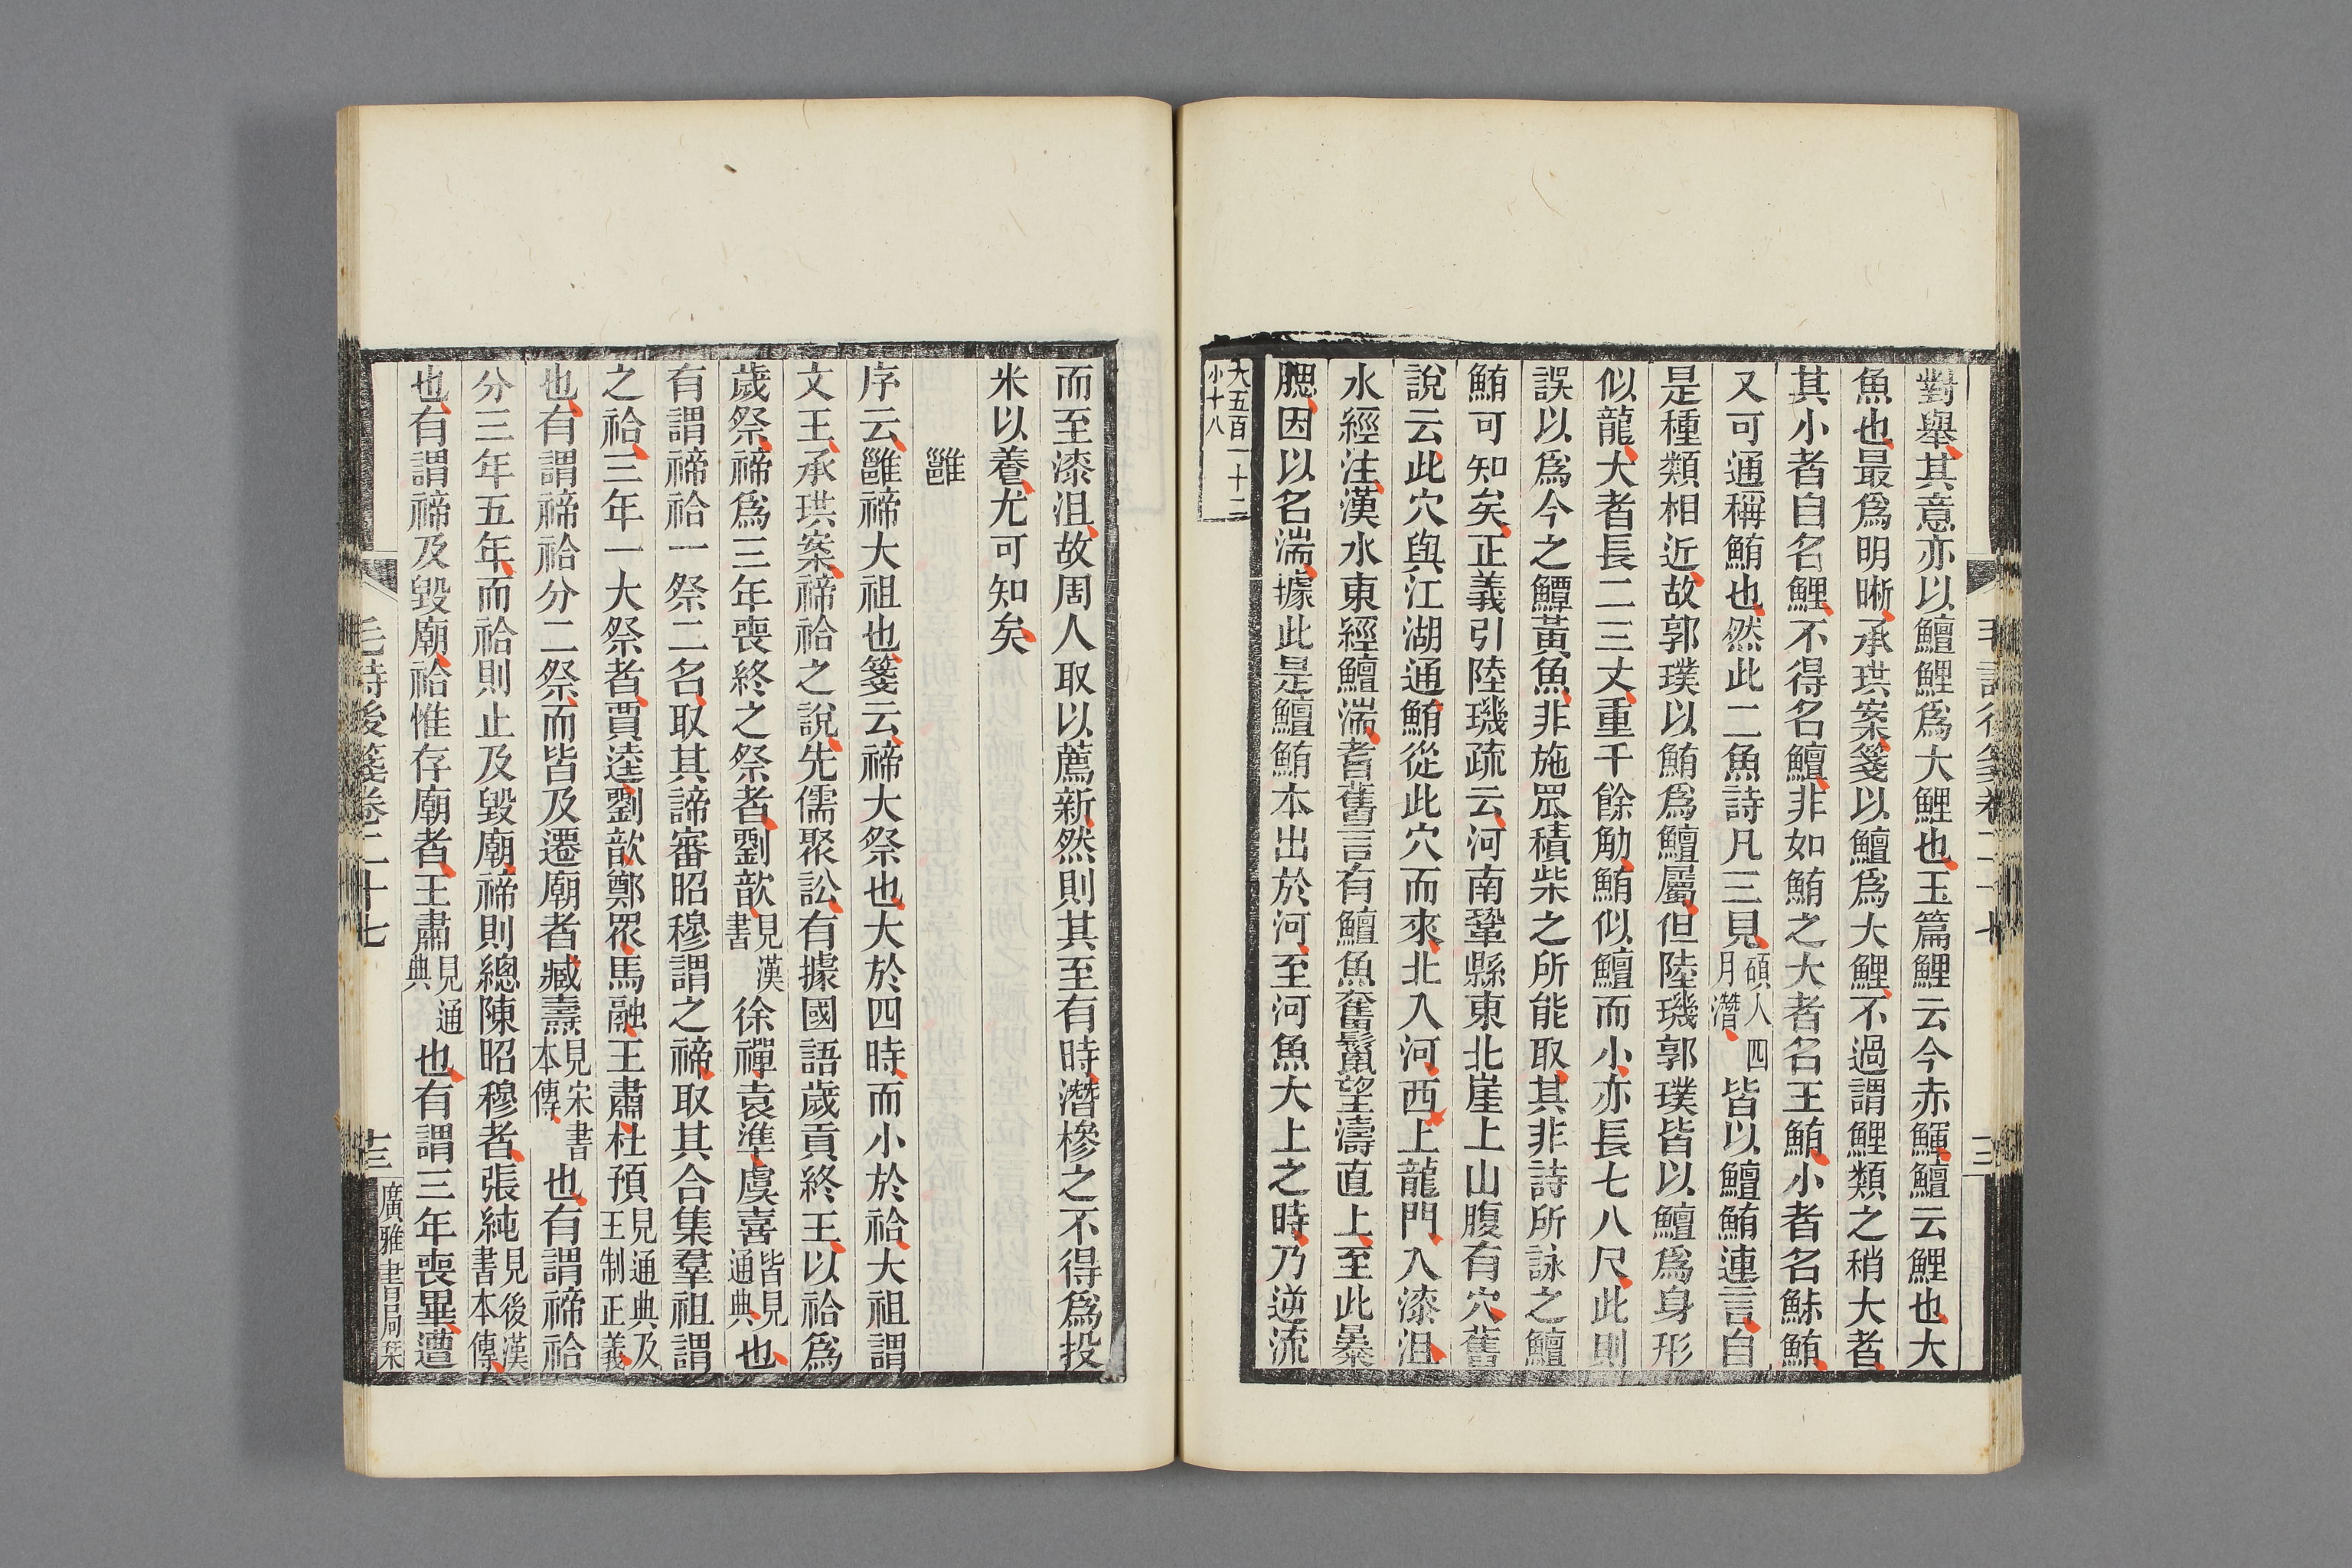 對舉其意亦以鱣鯉爲大鯉也玉篇鯉云今赤鱓鱣云鯉也大
魚也最爲明晰承珙案箋以鱣爲大鯉不過謂鯉類之稍大者
其小者自名鯉不得名鱣非如鮪之大者名王鮪小者名鮛鮪
又可通稱鮪也然此二魚詩凡三見碩人四月潛皆以鱣鮪連言自
是種類相近故郭璞以鮪爲鱣屬但陸璣郭璞皆以鱣爲身形
似龍大者長二三丈重千餘觔鮪似鱣而小亦長七八尺此則
誤以爲今之鱏黃魚非施罛積柴之所能取其非詩所詠之鱣
鮪可知矣正義引陸璣疏云河南鞏縣東北崖上山腹有穴舊
說云此穴與江湖通鮪從此穴而來北入河西上龍門入漆沮
水經注漢水東經鱣湍耆舊言有鱣魚奮鬣望濤直上至此暴
腮因以名湍據此是鱣鮪本出於河至河魚大上之時乃逆流
大五百一十二
小十八
而至漆沮故周人取以薦新然則其至有時潛槮之不得爲投
米以養尤可知矣
雝
序云雝禘大祖也箋云禘大祭也大於四時而小於祫大祖謂
文王承珙案禘祫之說先儒聚訟有據國語歲貢終王以祫爲
歲祭禘爲三年喪終之祭者劉歆見漢書徐禪袁準虞喜皆見通典也
有謂禘祫一祭二名取其諦審昭穆謂之禘取其合集羣祖謂
之祫三年一大祭者賈逵劉歆鄭眾馬融王肅杜預見通典及王制正義
也有謂禘祫分二祭而皆及遷廟者臧壽見宋書本傳也有謂禘祫
分三年五年而祫則止及毀廟禘則總陳昭穆者張純見後漢書本傳
也有謂禘及毀廟祫惟存廟者王肅見通典也有謂三年喪畢遭
毛詩後箋卷二十七
十三
廣雅書局栞